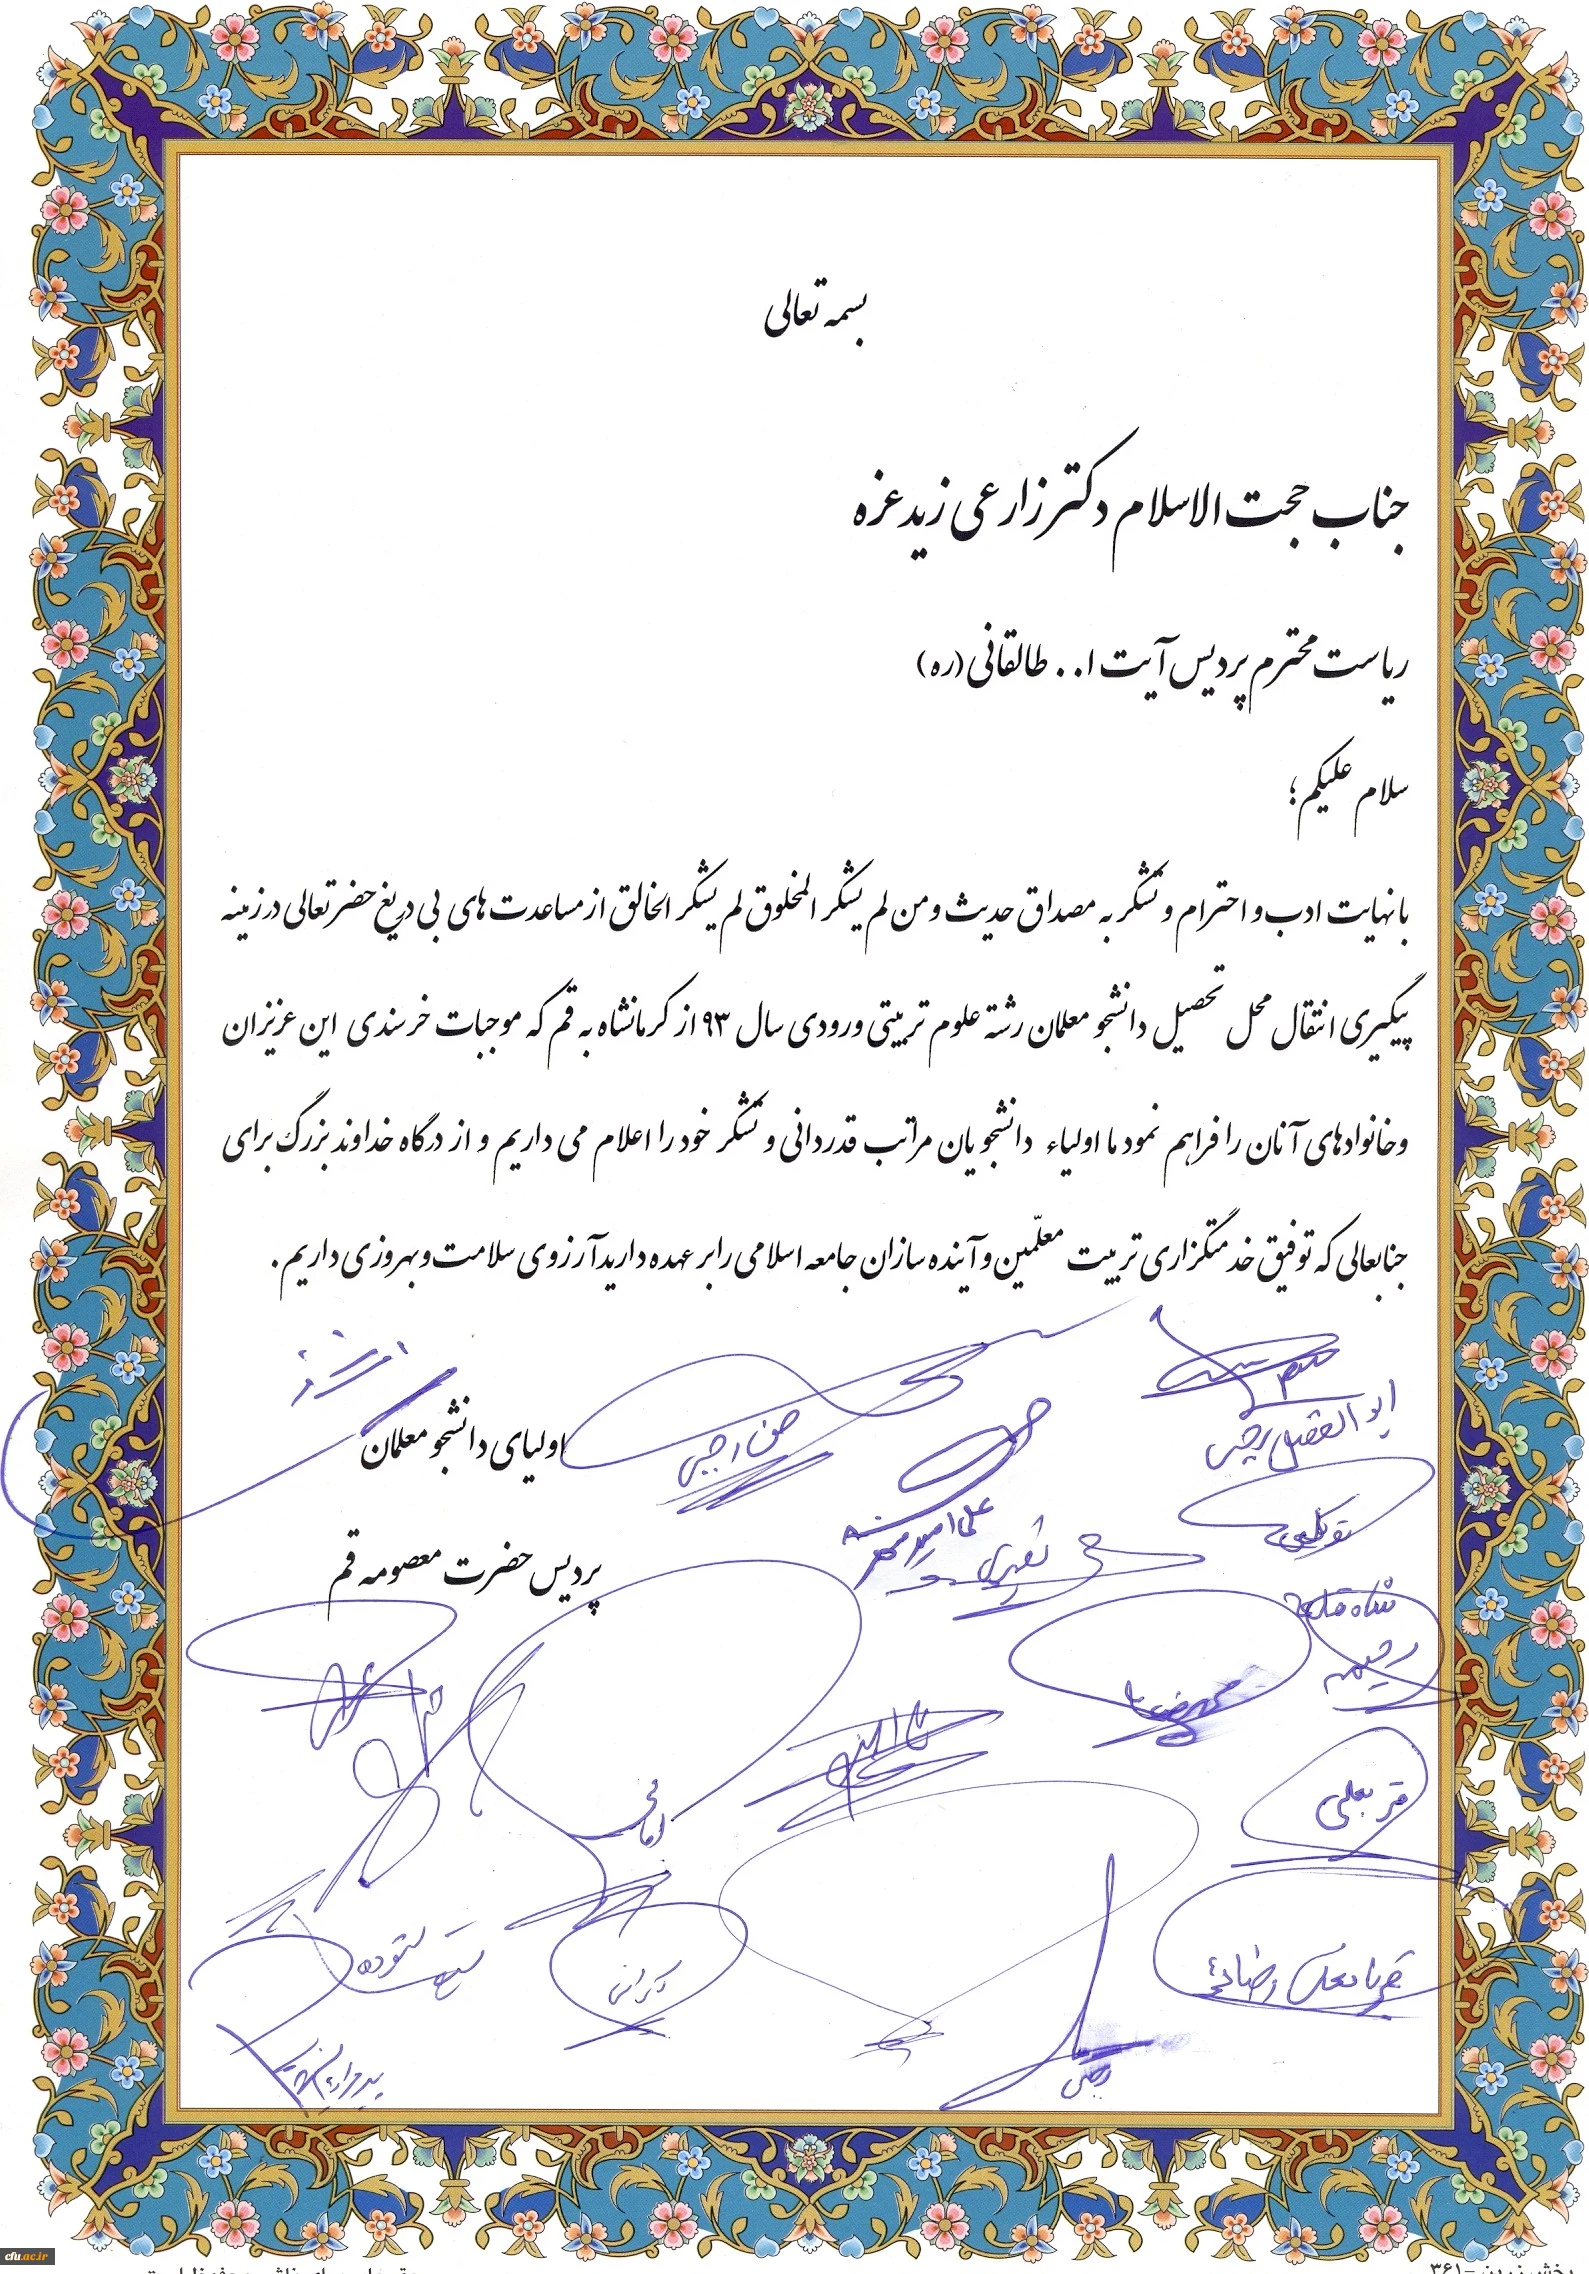 بسمه تعالی
جناب حجت الاسلام دکتر زارعی زید عزه
ریاست محترم پردیس آیت ا.. طالقانی (ره)
سلام علیکم؛
با نهایت ادب و احترام و تشکر به مصداق حدیث و من لم یشکر المخلوق لم یشکر الخالق از مساعدت های بی دریغ حضرتعالی در زمینه
پیگیری انتقال محل تحصیل دانشجو معلمان رشته علوم تربیتی ورودی سال ۹۳ از کرمانشاه به قم که موجبات خرسندی این عزیزان
و خانوادهای آنان را فراهم نمود ما اولیاء دانشجویان مراتب قدردانی و تشکر خود را اعلام می داریم و از درگاه خداوند بزرگ برای
جنابعالی که توفیق خدمتگزاری تربیت معلّمین و آینده سازان جامعه اسلامی را بر عهده دارید آرزوی سلامت و بهروزی داریم.
اولیای دانشجو معلمان
پردیس حضرت معصومه قم
ابوالفضل رجبی
رجبی
توکلی
نصیری
شاه قلعه
رحیمی
محمدرضا
قربعلی
قربانعلی رضائی
ستوده
cfu.ac.ir